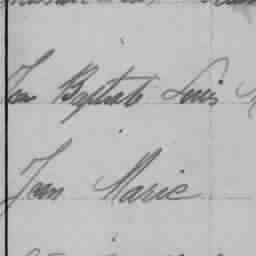 Jean Baptiste Louis
Jean Marie